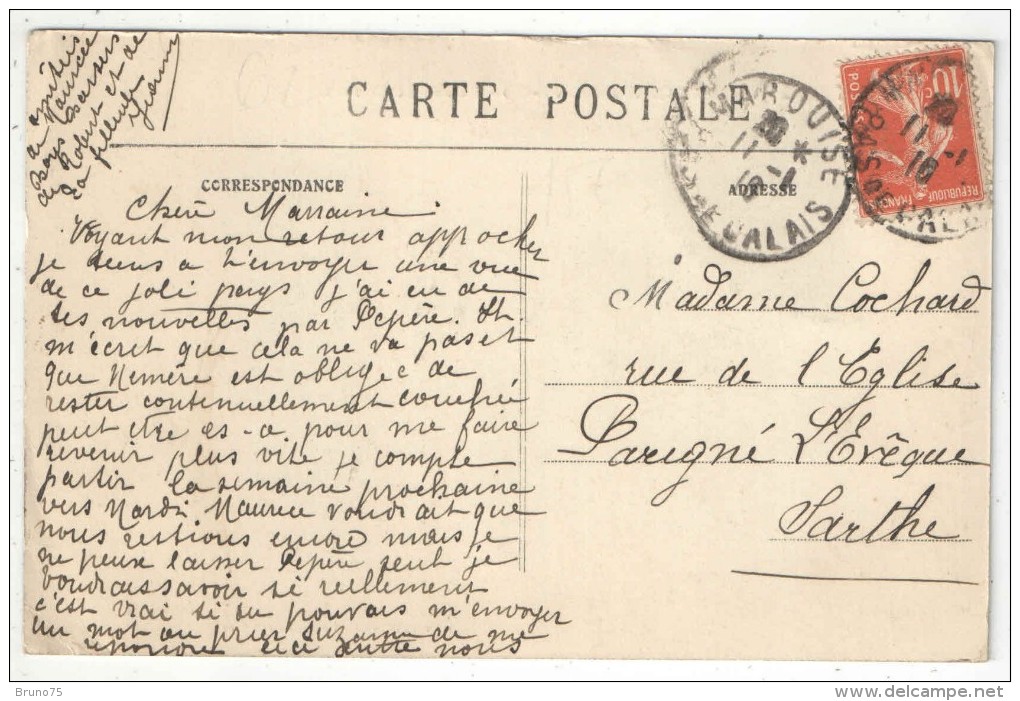 amitiés
à Maurice
Bons Baisers
de Robert et de
ta filleule
CARTE POSTALE
MARQUISE
20
11 - 1
16
PAS DE CALAIS
10
POSTES
REPUBLIQUE FRANÇAISE
CORRESPONDANCE
ADRESSE
Chère Marraine
Voyant mon retour approcher
je tiens a t'envoyer une vue
de ce joli pays j'ai eu de
tes nouvelles par Pepère. Il
m'ecret que cela ne va pas et
que Memère est obligee de
rester contenuellement couchée
peut etre es-a pour me faire
revenir plus vite je compte
partir la semaine prochaine
vers Mardi Maurice voudrait que
nous restions encore mais je
ne peux laisser Pepère seul je
voudrais savoir si reellement
c'est vrai si tu pouvais m'envoyer
un mot ou prier Suzanne de me
repondre ceci entre nous
Madame Cochard
rue de l'Eglise
Parigné L'Evêque
Sarthe
Bruno75
delcampe.net